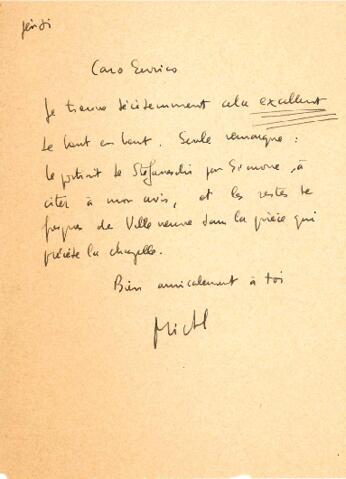 jeudi
Caro Enrico
Je trouve décidemment cela excellent
de bout en bout. Seule remarque :
le portrait de Stefaneschi par Simone, à
citer à mon avis, et les restes de
fresques de Villeneuve dans la pièce qui
précède la chapelle.
Bien amicalement à toi
Michel